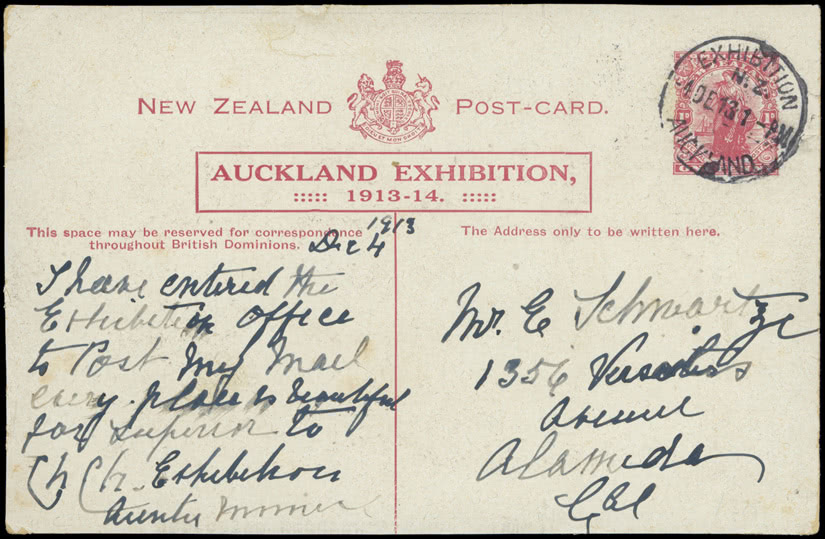 NEW ZEALAND POST-CARD.
EXHIBITION
N.Z.
4 DE 13 1 - PM
AUCKLAND
AUCKLAND EXHIBITION,
::::: 1913-14. :::::
This space may be reserved for correspondence
throughout British Dominions.
The Address only to be written here.
1913
Dec 4
I have entered the
Exhibition office
to Post My Mail
every place is beautiful
far superior to
Ch Ch. Exhibition
Auntie
Mr. E Schwartze
1356 Versailles
Avenue
Alameda
Cal